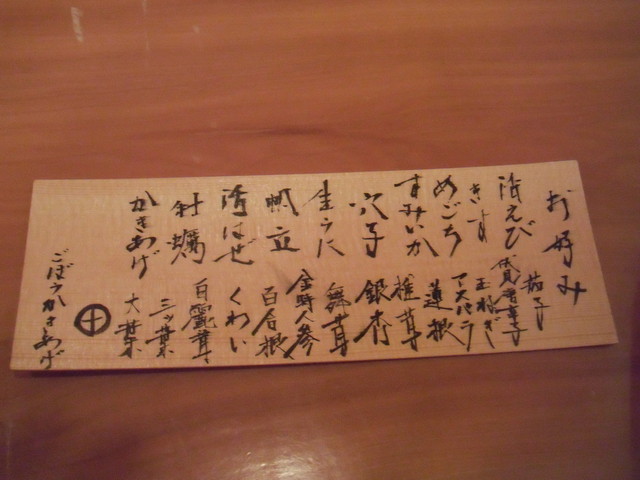 お好み
活えび
きす
めごち
すみいか
穴子
生うに
帆立
活はぜ
牡蠣
かきあげ
茄子
伏見唐辛子
玉ねぎ
アスパラ
蓮根
椎茸
銀杏
舞茸
金時人参
百合根
くわい
白霊茸
三ッ葉
大葉
ごぼうかきあげ